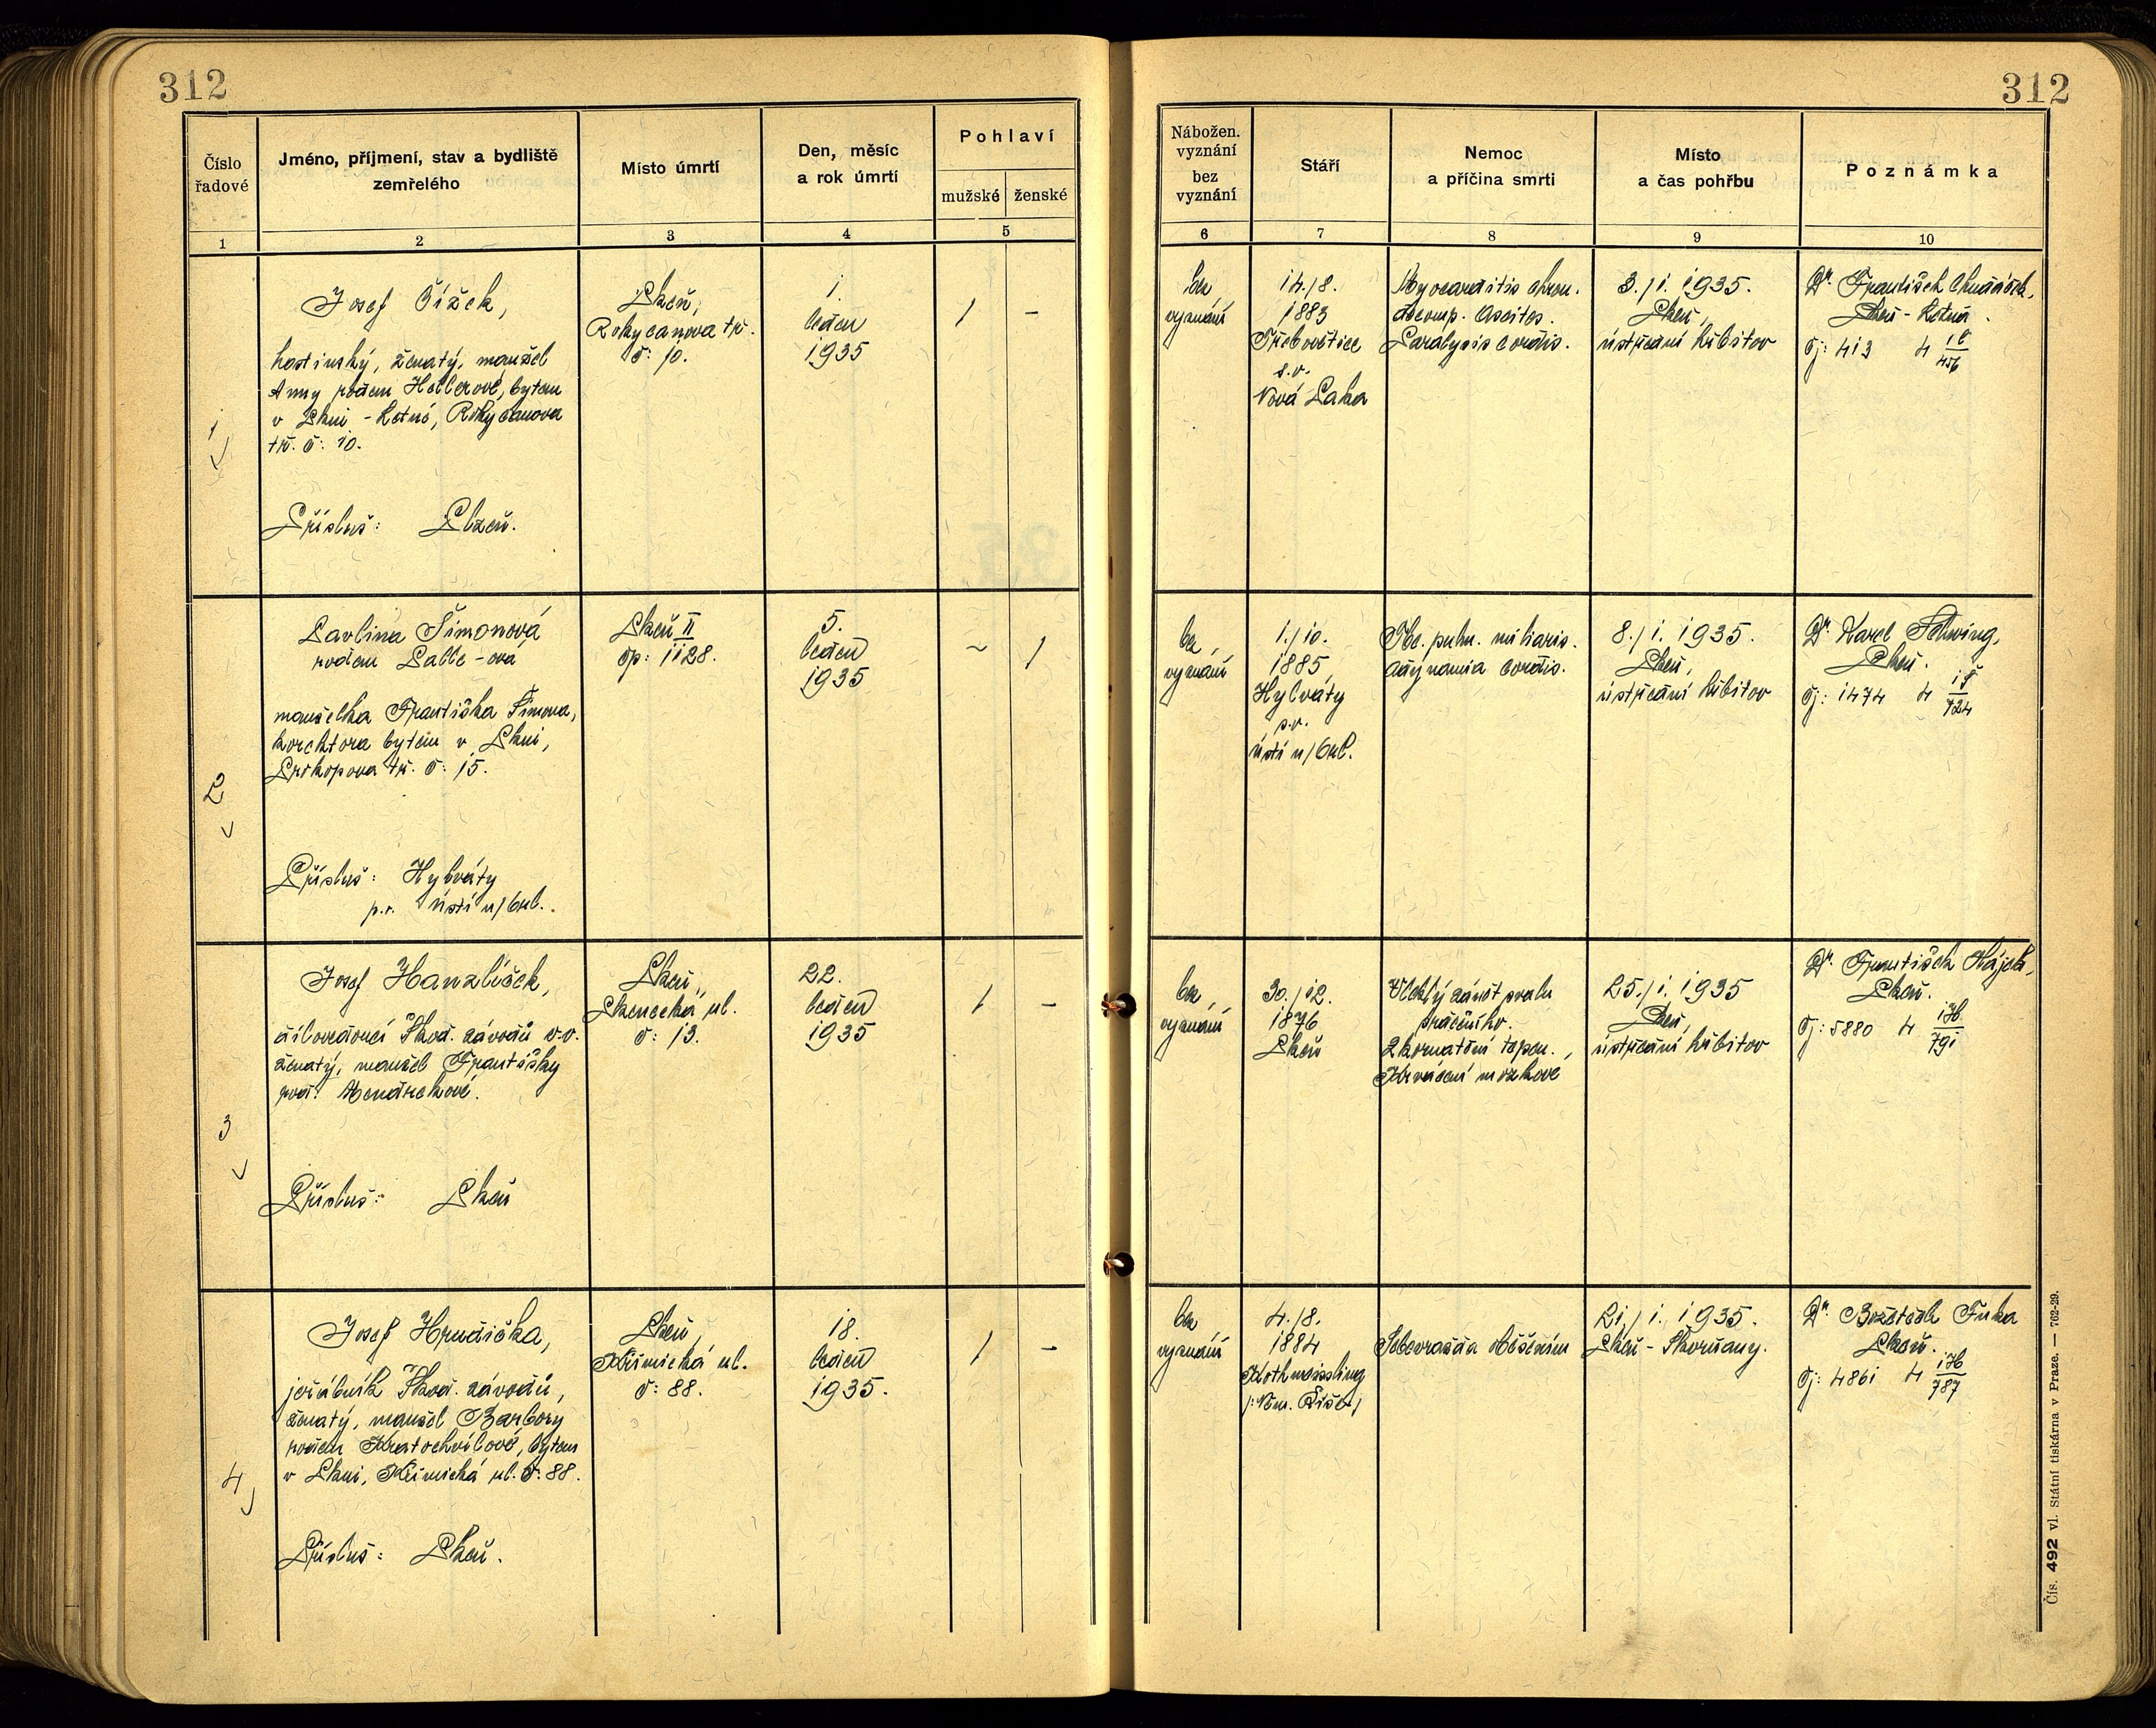 312
312
Číslo
řadové
Jméno, příjmení, stav a bydliště
zemřelého
Místo úmrtí
Den, měsíc
a rok úmrtí
Pohlaví
mužské
ženské
Nábožen.
vyznání
bez
vyznání
Stáří
Nemoc
a příčina smrti
Místo
a čas pohřbu
Poznámka
1
2
3
4
5
6
7
8
9
10
1
Josef Čížek,
hostinský, ženatý, manžel
Anny rodem Hellerové, bytem
v Plzni - Letné, Rokycanova
tř. č: 10.
Přísluš: Plzeň.
Plzeň,
Rokycanova tř.
č: 10.
1.
leden
1935
1
-
bez
vyznání
14./8.
1883
Třebovětice
s.o.
Nová Paka
Myocarditis chron.
decomp. Ascites.
Paralysis cordis.
3./1. 1935.
Plzeň,
ústřední hřbitov
Dr. František
Plzeň - Letná.
čj: 413 4
2
Pavlína Šimonová
rodem
manželka Františka Šimona,
korektora bytem v Plzni,
Prokopova tř. č: 15.
Přísluš: Hylváty
p.o. Ústí n/Orl.
Plzeň II
čp: 1128.
5.
leden
1935
~
1
bez
vyznání
1./10.
1885
Hylváty
s.o.
Ústí n/Orl.
Tbc. pulm. miliaris.
Adynamia cordis.
8./1. 1935.
Plzeň,
ústřední hřbitov
Dr. Karel Schwing,
Plzeň.
čj: 1474 4
3
Josef Hanzlíček,
dílovedoucí Škod. závodů v.v.
ženatý, manžel Františky
rod.
Přísluš: Plzeň
Plzeň,
č: 13.
22.
leden
1935
1
-
bez
vyznání
30./12.
1876
Plzeň
Vleklý zánět svalu
srdečního.
Zkornatění tepen.,
Krvácení mozkové
25./1. 1935
Plzeň,
ústřední hřbitov
Dr. František Hájek,
Plzeň.
čj: 5880 4 17b/791
4
Josef Hrudička,
jeřábník Škod. závodů,
ženatý, manžel Barbory
rodem Kratochvílové, bytem
v Plzni, Křimická ul. č: 88.
Přísluš: Plzeň.
Plzeň,
Křimická ul.
č: 88.
18.
leden
1935.
1
-
bez
vyznání
4./8.
1884
Rothweissling
/: Něm. Říše/
Sebevražda oběšením
21./1. 1935.
Plzeň - Skvrňany.
Dr. Božetěch Fuka
Plzeň.
čj: 4861 4 17b/787
Čís. 492 vl. Státní tiskárna v Praze. — 762-29.